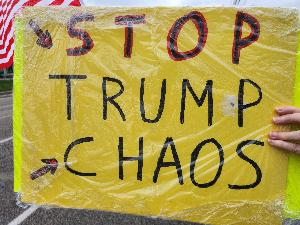 STOP
TRUMP
CHAOS